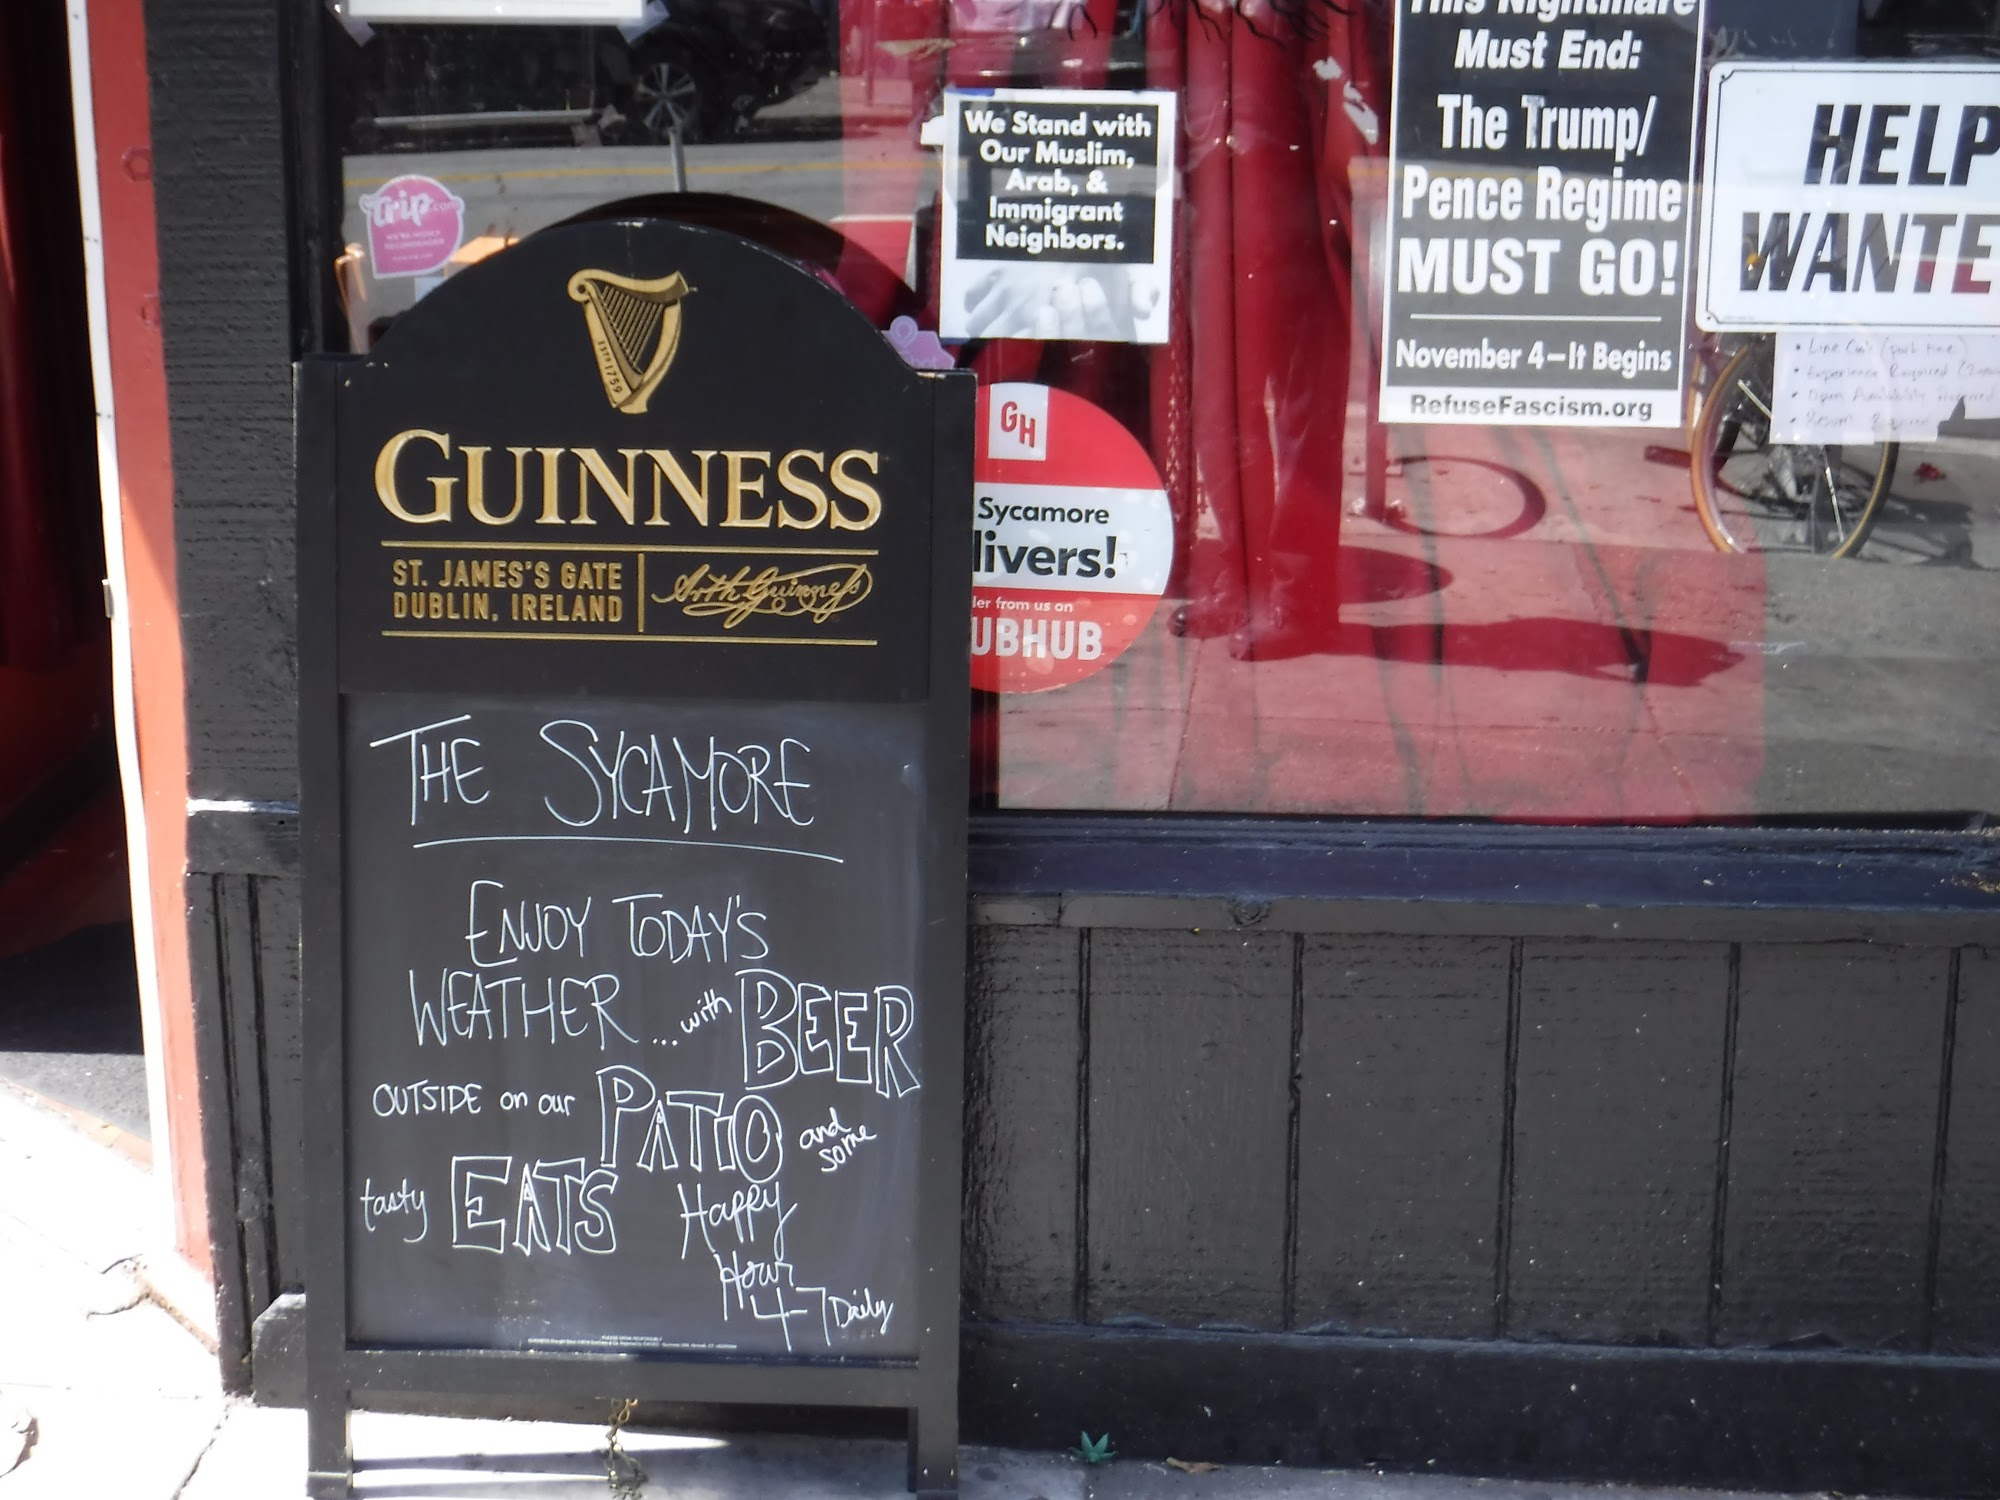 GUINNESS
ESTD 1759
ST. JAMES'S GATE
DUBLIN, IRELAND
Arth Guinness
THE SYCAMORE
ENJOY TODAY'S
WEATHER ... with BEER
OUTSIDE on our PATIO and some
tasty EATS Happy
Hour
4-7 Daily
trip.com
We Stand with
Our Muslim,
Arab, &
Immigrant
Neighbors.
GH
Sycamore
livers!
from us on
UBHUB
This Nightmare
Must End:
The Trump/
Pence Regime
MUST GO!
November 4—It Begins
RefuseFascism.org
HELP
WANTE
Experience Required
Open Availability